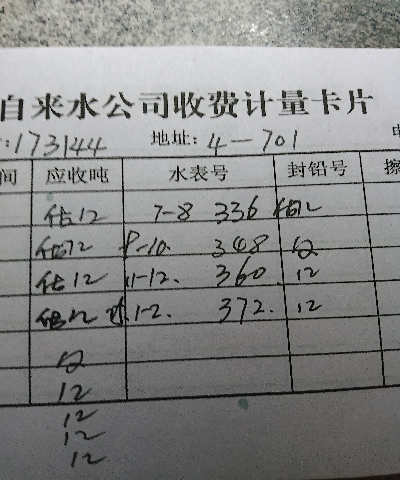 自来水公司收费计量卡片
:173144 地址: 4-701
间 应收吨 水表号 封铅号
估12 7-8 336 估12
估12 9-10. 348 12
估12 11-12. 360. 12
估12 1-2. 372. 12
12
12
12
12
12